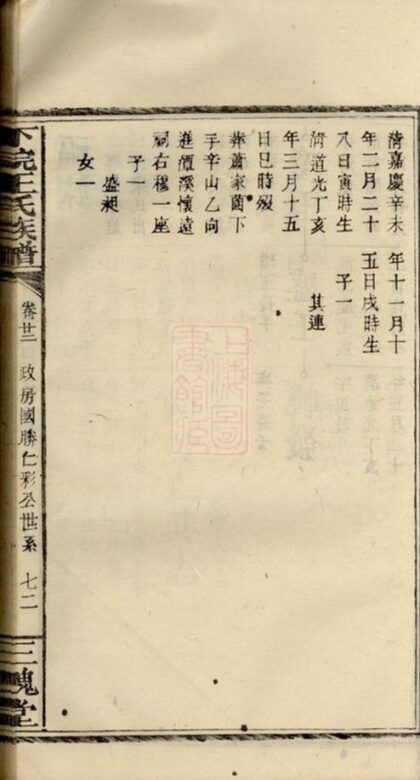 清嘉慶辛未
年二月二十
八日寅時生
清道光丁亥
年三月十五
日巳時歿
葬蕭家薗下
手辛山乙向
進潭溪懷遠
祠右穆一座
子一
盛昶
女一
年十一月十
五日戌時生
子一
其連
王氏族譜
卷廿二
政房國勝仁彩公世系
七二
三槐堂
上海圖書館藏